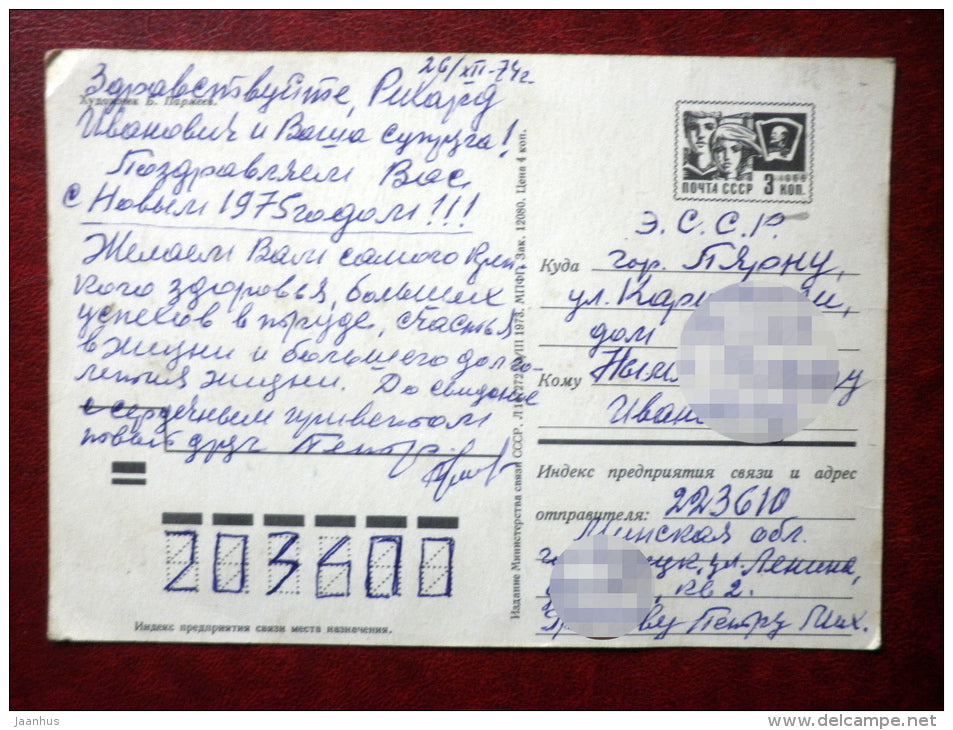 26/XII-74г.
Здравствуйте, Рихард
Художник Б. Пармеев.
Иванович и Ваша супруга!
Поздравляем Вас
с Новым 1975 годом!!!
Желаем Вам самого креп
кого здоровья, больших
успехов в труде, счастья
в жизни и большего долго-
летия жизни. До свидание
с сердечным приветом
твой друг Петр.
203600
Индекс предприятия связи места назначения.
Издание Министерства связи СССР. 1973. МПФГ. Зак. 12080. Цена 4 коп.
1966
ПОЧТА СССР 3 КОП.
Э.С.С.Р.
Куда гор. Пярну,
ул.
дом
Кому
Индекс предприятия связи и адрес
отправителя: 223610
Минская обл.
ул. Ленина,
кв 2.
Петру Мих.
Jaanhus
www.delcampe.net